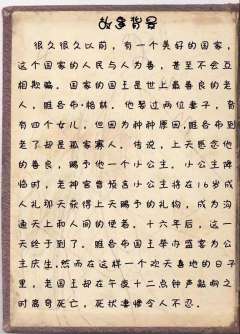 故事背景
很久很久以前，有一个美好的国家，
这个国家的人民与人为善，甚至不会互
相欺骗。国家的国王是世上最善良的老
人，唯吝布·格林。他娶过两位妻子，育
有四个女儿，但因为种种原因，唯吝布到
老了却是孤家寡人。传说，上天感念他
的善良，赐予他一个小公主。小公主降
临时，老神官曾预言小公主将在16岁成
人礼那天获得上天赐予的礼物，成为沟
通天上和人间的使者。十六年后，这一
天终于到了，唯吝布国王举办盛宴为公
主庆生，然而在这样一个欢天喜地的日子
里，老国王却在午夜十二点钟声敲响之
时离奇死亡，死状凄惨令人不忍。